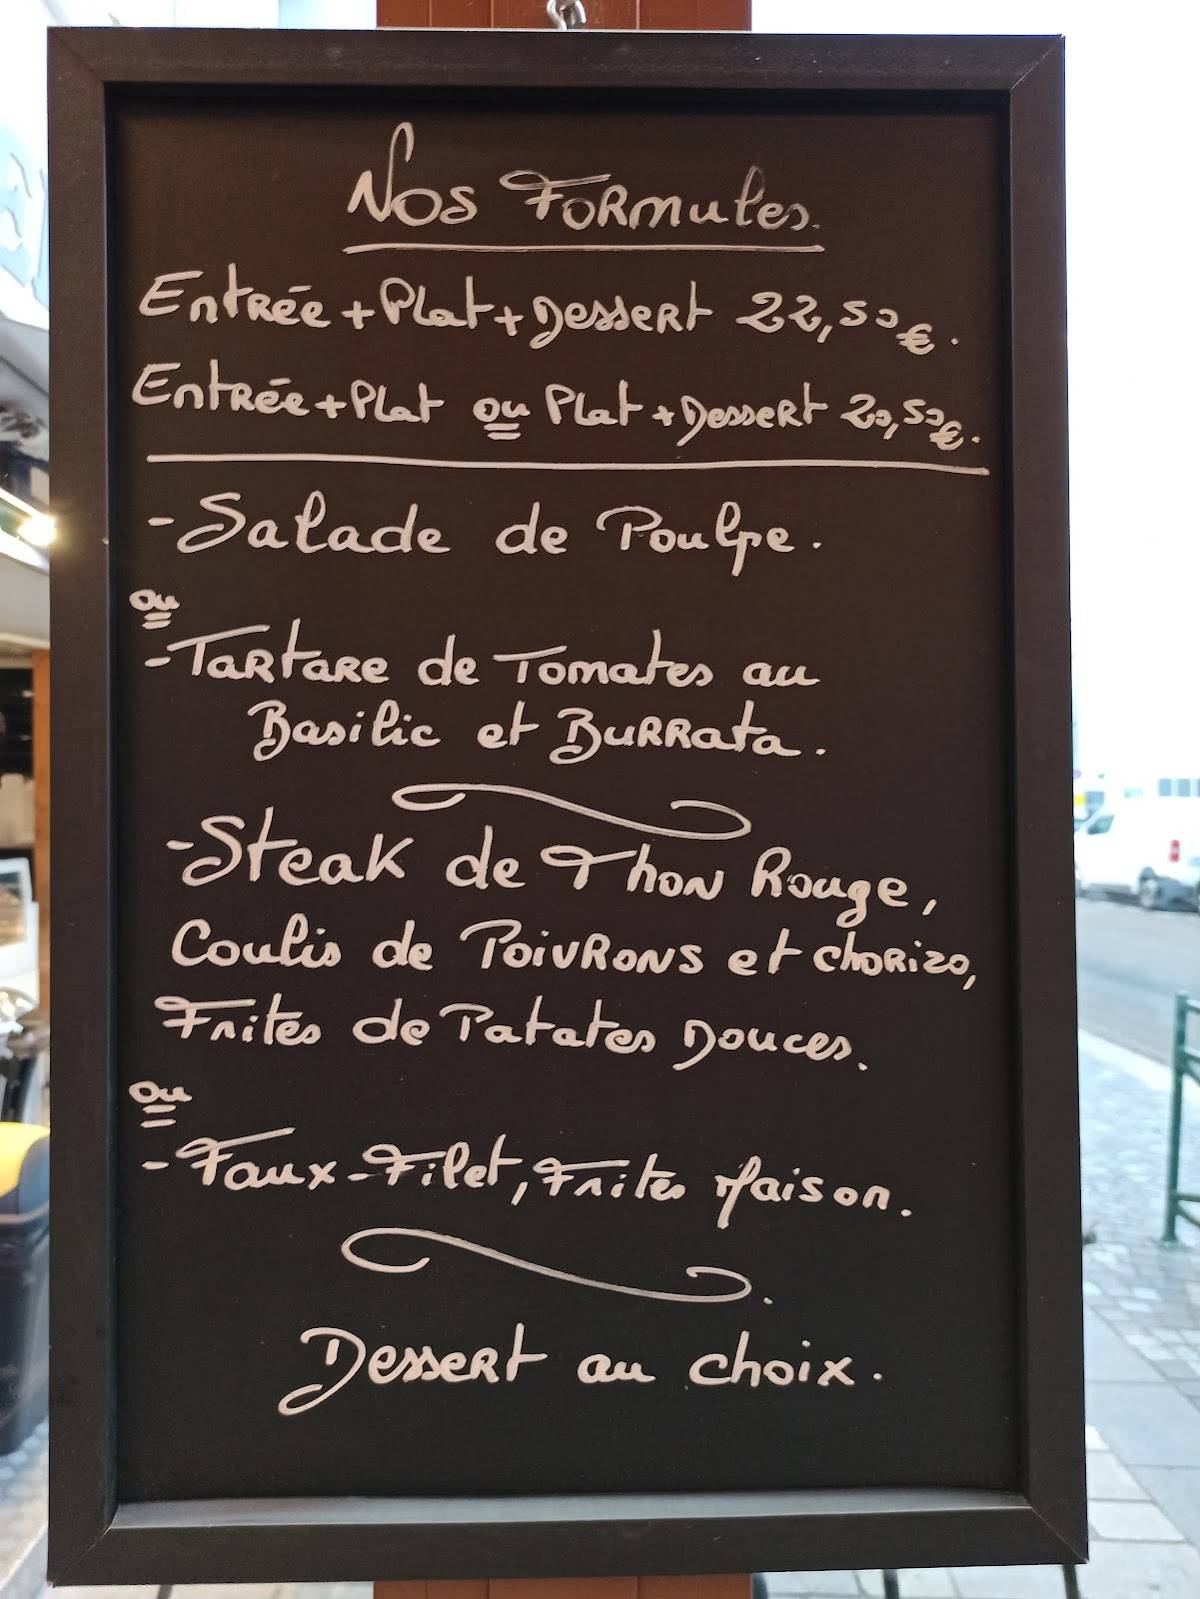 Nos Formules.
Entrée + Plat + Dessert 22,50€.
Entrée + Plat ou Plat + Dessert 20,50€.
- Salade de Poulpe.
ou
- Tartare de Tomates au
Basilic et Burrata.
- Steak de Thon Rouge,
Coulis de Poivrons et chorizo,
Frites de Patates Douces.
ou
- Faux-Filet, Frites Maison.
Dessert au choix.